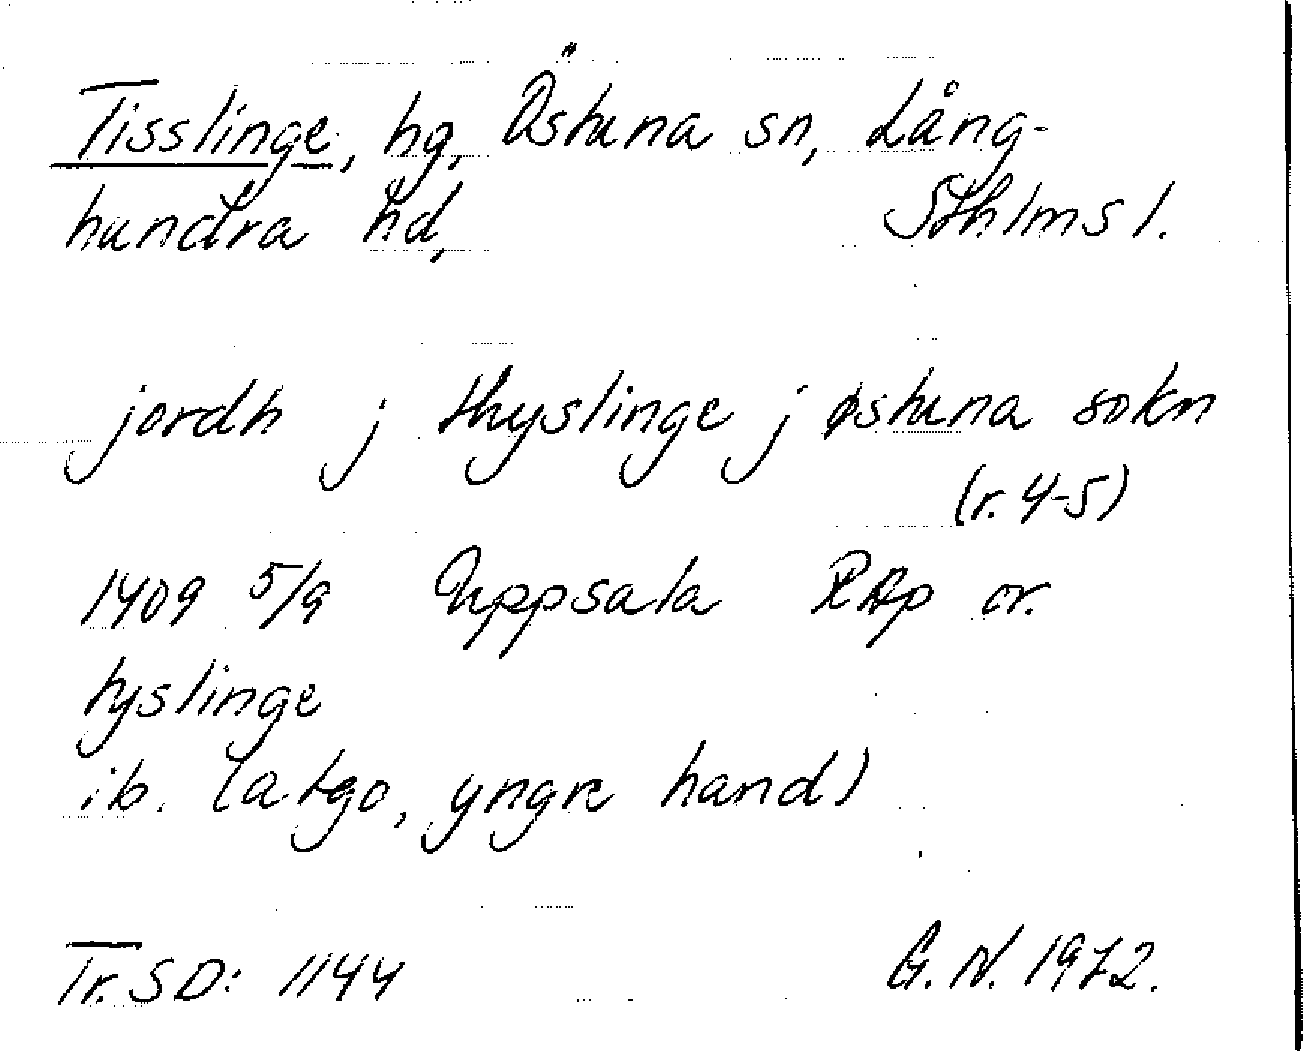 Tisslinge, hg, Östuna sn, Lång-
hundra hd, Sthlms l.
jordh j thyslinge j østuna sokn
(r. 4-5)
1409 5/9 Uppsala RAp or.
tyslinge
ib. (atgo, yngre hand)
Tr. SD: 1144 G. N. 1972.